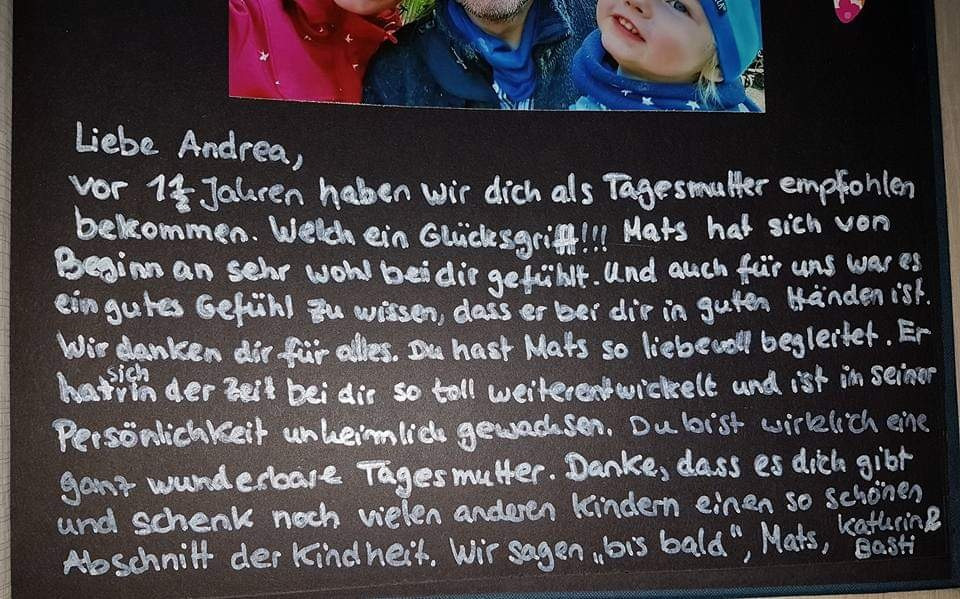 Liebe Andrea,
vor 1½ Jahren haben wir dich als Tagesmutter empfohlen
bekommen. Welch ein Glücksgriff!!! Mats hat sich von
Beginn an sehr wohl bei dir gefühlt. Und auch für uns war es
ein gutes Gefühl zu wissen, dass er bei dir in guten Händen ist.
Wir danken dir für alles. Du hast Mats so liebevoll begleitet. Er
hat sich in der Zeit bei dir so toll weiterentwickelt und ist in seiner
Persönlichkeit unheimlich gewachsen. Du bist wirklich eine
ganz wunderbare Tagesmutter. Danke, dass es dich gibt
und schenk noch vielen anderen Kindern einen so schönen
Abschnitt der Kindheit. Wir sagen „bis bald", Mats, Kathrin &
Basti